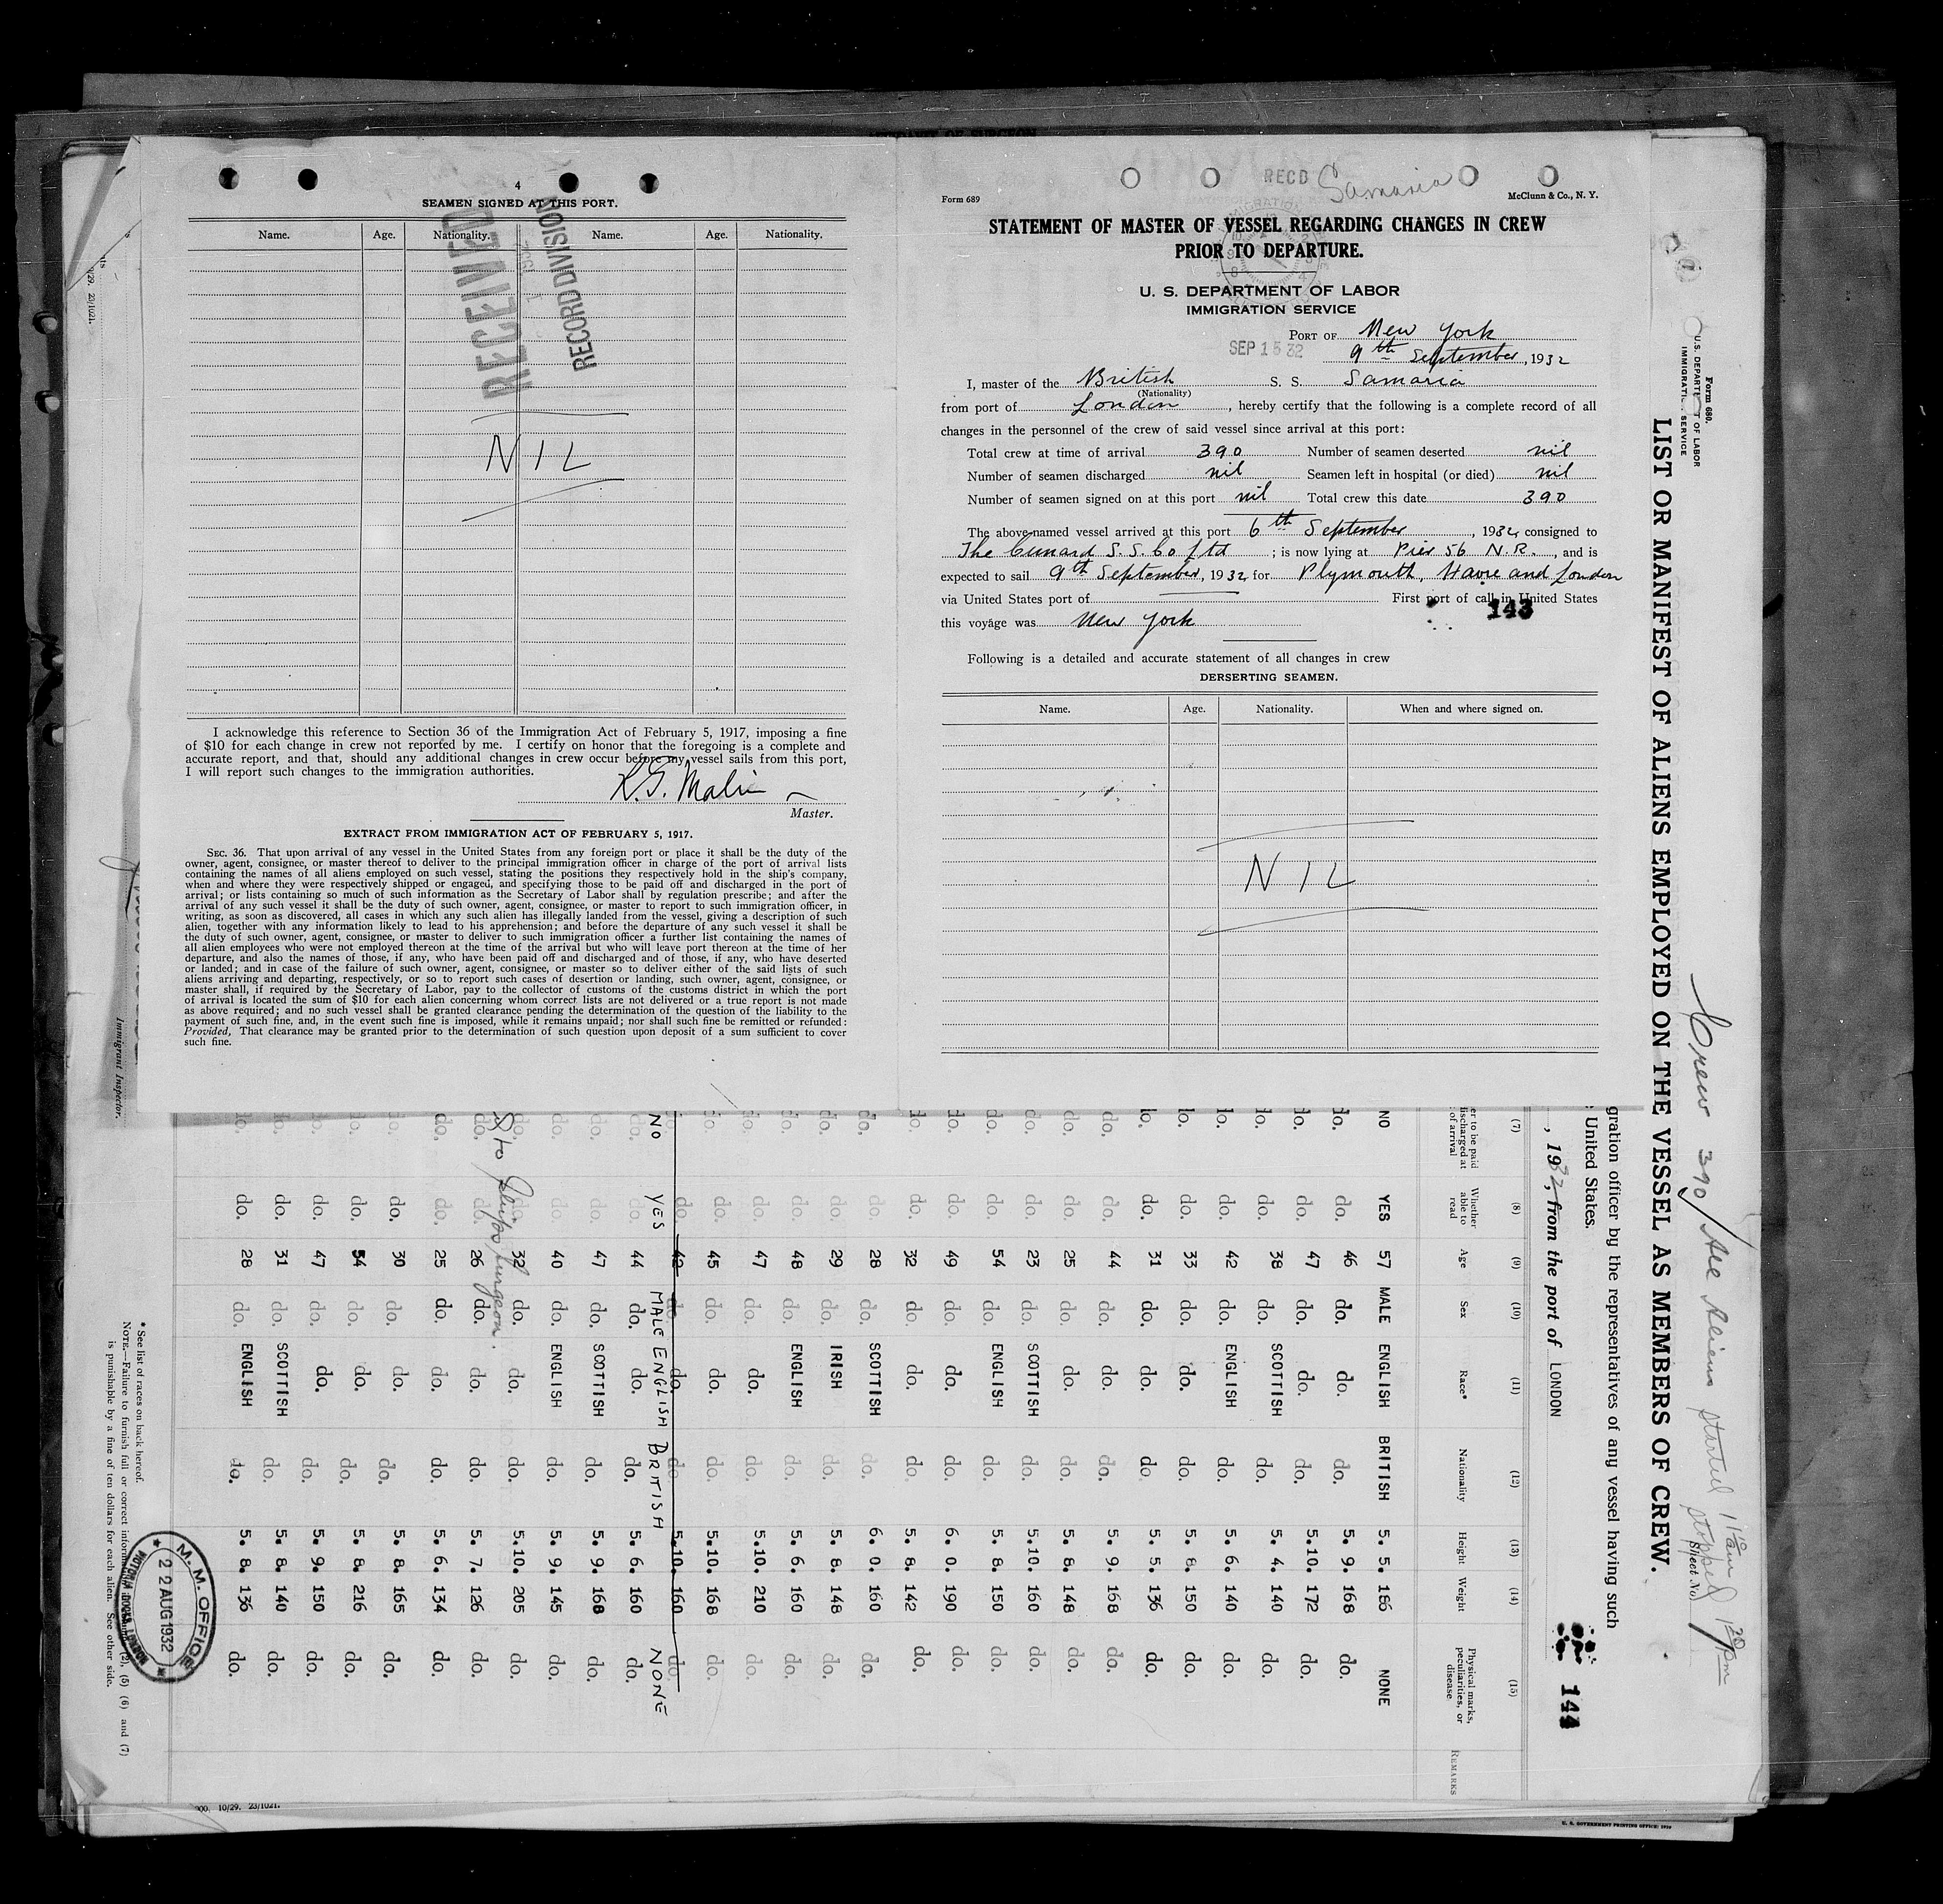 4
SEAMEN SIGNED AT THIS PORT.
Name. Age. Nationality. Name. Age. Nationality.
RECEIVED
RECORD DIVISION
NIL
I acknowledge this reference to Section 36 of the Immigration Act of February 5, 1917, imposing a fine
of $10 for each change in crew not reported by me. I certify on honor that the foregoing is a complete and
accurate report, and that, should any additional changes in crew occur before my vessel sails from this port,
I will report such changes to the immigration authorities.
R.G. Malin
Master.
EXTRACT FROM IMMIGRATION ACT OF FEBRUARY 5, 1917.
SEC. 36. That upon arrival of any vessel in the United States from any foreign port or place it shall be the duty of the
owner, agent, consignee, or master thereof to deliver to the principal immigration officer in charge of the port of arrival lists
containing the names of all aliens employed on such vessel, stating the positions they respectively hold in the ship's company,
when and where they were respectively shipped or engaged, and specifying those to be paid off and discharged in the port of
arrival; or lists containing so much of such information as the Secretary of Labor shall by regulation prescribe; and after the
arrival of any such vessel it shall be the duty of such owner, agent, consignee, or master to report to such immigration officer, in
writing, as soon as discovered, all cases in which any such alien has illegally landed from the vessel, giving a description of such
alien, together with any information likely to lead to his apprehension; and before the departure of any such vessel it shall be
the duty of such owner, agent, consignee, or master to deliver to such immigration officer a further list containing the names of
all alien employees who were not employed thereon at the time of the arrival but who will leave port thereon at the time of her
departure, and also the names of those, if any, who have been paid off and discharged and of those, if any, who have deserted
or landed; and in case of the failure of such owner, agent, consignee, or master so to deliver either of the said lists of such
aliens arriving and departing, respectively, or so to report such cases of desertion or landing, such owner, agent, consignee, or
master shall, if required by the Secretary of Labor, pay to the collector of customs of the customs district in which the port
of arrival is located the sum of $10 for each alien concerning whom correct lists are not delivered or a true report is not made
as above required; and no such vessel shall be granted clearance pending the determination of the question of the liability to the
payment of such fine, and, in the event such fine is imposed, while it remains unpaid; nor shall such fine be remitted or refunded:
Provided, That clearance may be granted prior to the determination of such question upon deposit of a sum sufficient to cover
such fine.
RECD Samaria
Form 689 McClunn & Co., N. Y.
STATEMENT OF MASTER OF VESSEL REGARDING CHANGES IN CREW
PRIOR TO DEPARTURE.
U. S. DEPARTMENT OF LABOR
IMMIGRATION SERVICE
PORT OF New York
SEP 15 32 9th September, 1932
I, master of the British S. S. Samaria
(Nationality)
from port of London, hereby certify that the following is a complete record of all
changes in the personnel of the crew of said vessel since arrival at this port:
Total crew at time of arrival 390 Number of seamen deserted nil
Number of seamen discharged nil Seamen left in hospital (or died) nil
Number of seamen signed on at this port nil Total crew this date 390
The above-named vessel arrived at this port 6th September, 1932 consigned to
The Cunard S.S. Co Ltd; is now lying at Pier 56 N.R., and is
expected to sail 9th September, 1932 for Plymouth, Havre and London
via United States port of First port of call in United States
this voyage was New York
143
Following is a detailed and accurate statement of all changes in crew
DERSERTING SEAMEN.
Name. Age. Nationality. When and where signed on.
NIL
Form 680.
U.S. DEPARTMENT OF LABOR
IMMIGRATION SERVICE
LIST OR MANIFEST OF ALIENS EMPLOYED ON THE VESSEL AS MEMBERS OF CREW.
Crew 390 / All Aliens started 11 10 am
stopped 1 20 pm
Sheet No.
gration officer by the representatives of any vessel having such
United States.
, 1932, from the port of LONDON
144
(7) (8) (9) (10) (11) (12) (13) (14) (15)
er to be paid discharged at of arrival Whether able to read Age Sex Race* Nationality Height Weight Physical marks, peculiarities, or disease REMARKS
NO YES 57 MALE ENGLISH BRITISH 5. 5. 186 NONE
do. do. 46 do. do. do. 5. 9. 168 do.
do. do. 47 do. do. do. 5.10. 172 do.
do. do. 38 do. SCOTTISH do. 5. 4. 140 do.
do. do. 42 do. ENGLISH do. 5. 6. 140 do.
do. do. 33 do. do. do. 5. 8. 150 do.
do. do. 31 do. do. do. 5. 5. 136 do.
do. do. 44 do. do. do. 5. 9. 168 do.
do. do. 25 do. do. do. 5. 8. 148 do.
do. do. 23 do. SCOTTISH do. 5.10. 160 do.
do. do. 54 do. ENGLISH do. 5. 8. 150 do.
do. do. 49 do. do. do. 6. 0. 190 do.
do. do. 32 do. do. do. 5. 8. 142 do.
do. do. 28 do. SCOTTISH do. 6. 0. 160 do.
do. do. 29 do. IRISH do. 5. 8. 148 do.
do. do. 48 do. ENGLISH do. 5. 6. 160 do.
do. do. 47 do. do. do. 5.10. 210 do.
do. do. 45 do. do. do. 5.10. 168 do.
do. do. 42 do. do. do. 5.10. 160 do.
NO YES MALE ENGLISH BRITISH NONE
do. do. 44 do. do. do. 5. 6. 160 do.
do. do. 47 do. SCOTTISH do. 5. 9. 168 do.
do. do. 40 do. ENGLISH do. 5. 9. 145 do.
do. do. 32 do. do. do. 5.10. 205 do.
surgeon.
do. do. 26 do. do. do. 5. 7. 126 do.
do. do. 25 do. do. do. 5. 6. 134 do.
do. do. 30 do. do. do. 5. 8. 165 do.
do. do. 54 do. do. do. 5. 8. 216 do.
do. do. 47 do. do. do. 5. 9. 150 do.
do. do. 31 do. SCOTTISH do. 5. 8. 140 do.
do. do. 28 do. ENGLISH do. 5. 8. 136 do.
* See list of races on back hereof.
NOTE.—Failure to furnish full or correct information (2), (5) (6) and (7)
is punishable by a fine of ten dollars for each alien. See other side.
M. M. OFFICE
22 AUG 1932
VICTORIA DOCKS, LONDON
Immigrant Inspector.
000, 10/29. 23/1021.
U. S. GOVERNMENT PRINTING OFFICE: 1929